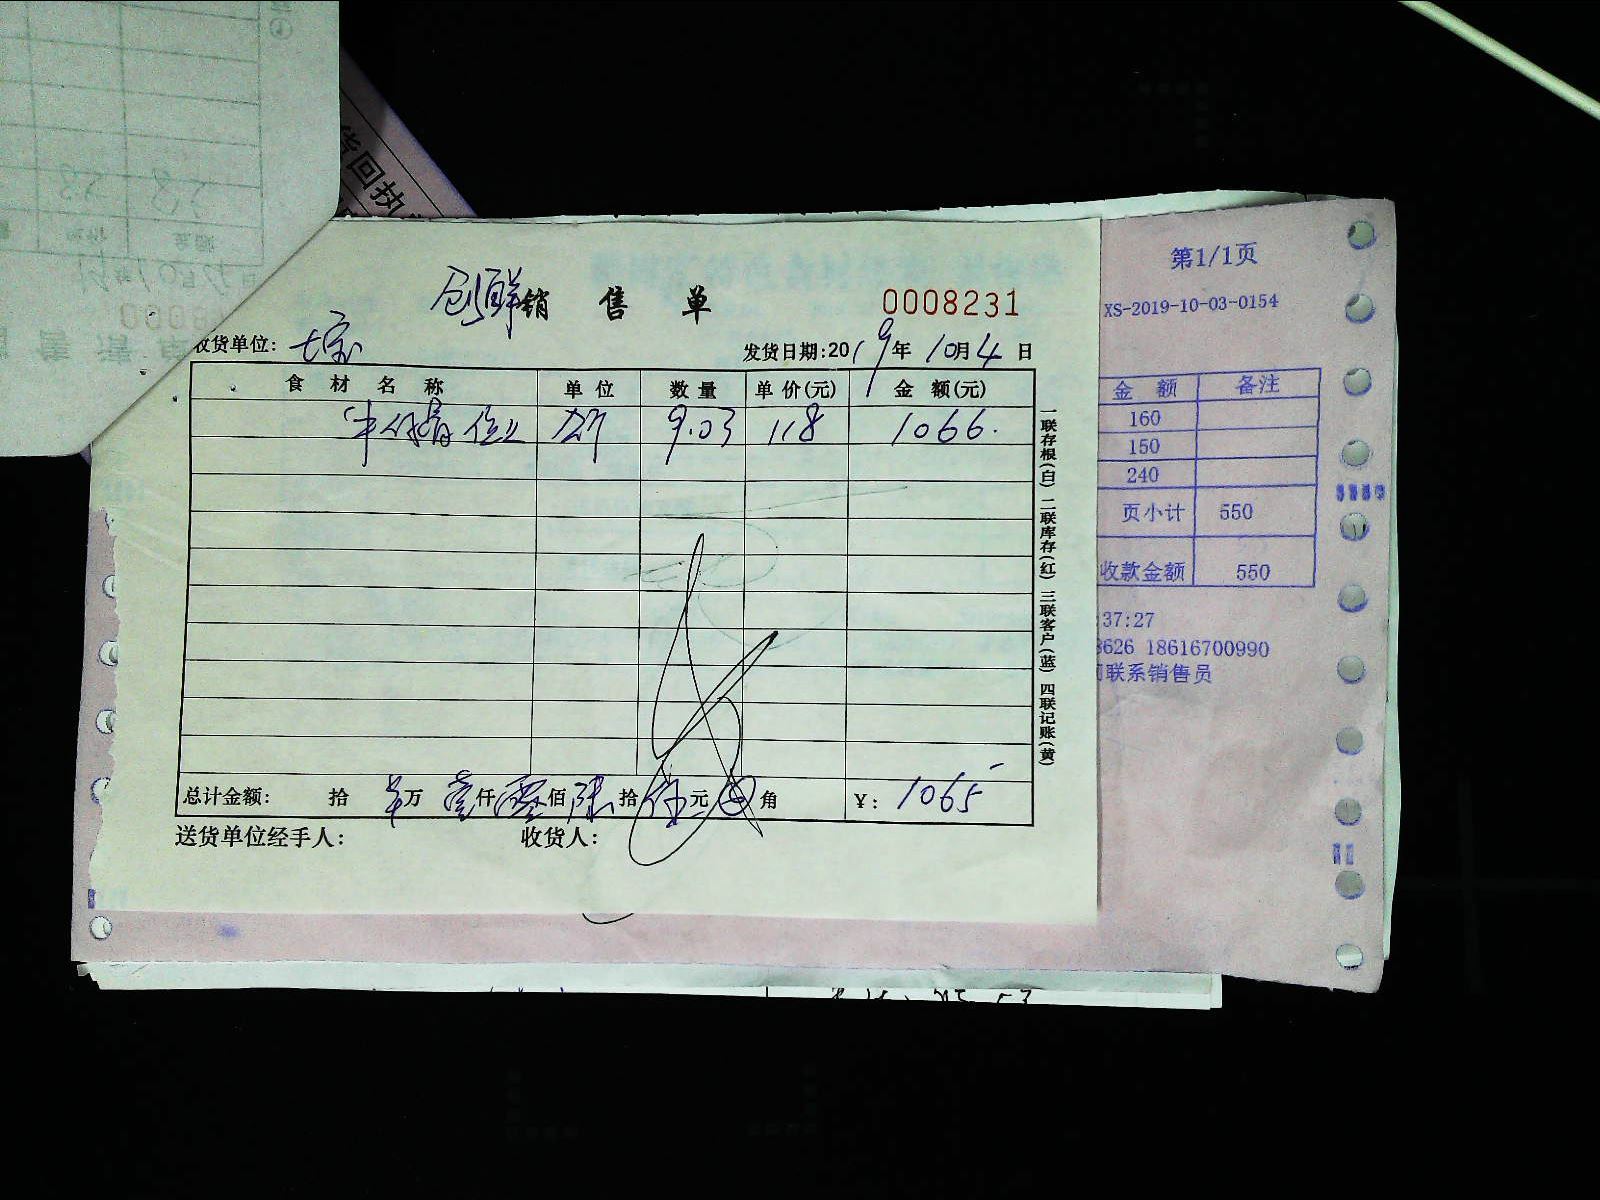 货回执
创鲜销售单
0008231
收货单位: 七宝
发货日期:2019年10月4日
食材名称 单位 数量 单价(元) 金额(元)
斤 9.03 118 1066.
总计金额: 拾 万 壹仟零佰陆拾伍元 角 ¥: 1065
送货单位经手人: 收货人:
一联存根(白) 二联库存(红) 三联客户(蓝) 四联记账(黄)
第1/1页
XS-2019-10-03-0154
金额 备注
160
150
240
页小计 550
收款金额 550
:37:27
8626 18616700990
联系销售员